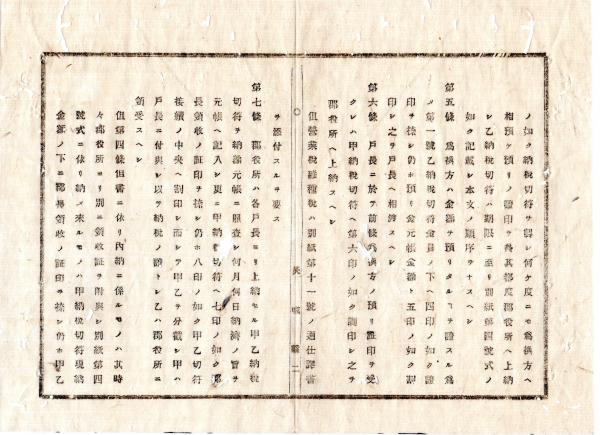 ノ如ク納税切符ヲ製シ何ケ度ニモ爲換方ヘ
相預ケ預リノ證印ヲ受其都度郡役所ヘ上納
シ乙納税切符ハ期限ニ至リ別紙第四號式ノ
如ク記載シ本文ノ順序ヲナスヘシ
第五條 爲換方ハ金額ヲ預リタルコヲ證スル爲
メ第一號乙納税切符金員ノ下ヘ四印ノ如ク證
印ヲ捺シ仍ホ預リ金元帳金額ト五印ノ如ク割
印シ之ヲ戸長ヘ相渡スヘシ
第六條 戸長ニ於テ前條爲換方ノ預リ證印ヲ受
クレハ甲納税切符ヘ第六印ノ如ク調印シ之ヲ
郡役所ヘ上納スヘシ
但營業税雜種税ハ別紙第十一號ノ通仕譯書
長崎縣
ヲ添付スルヲ要ス
第七條 郡役所ハ各戸長ヨリ上納セル甲乙納税
切符ヲ納額元帳ニ照査シ何月何日納濟ノ旨ヲ
元帳ヘ記入シ更ニ甲納税切符ヘ七印ノ如ク郡
長領收ノ証印ヲ捺シ仍ホ八印ノ如ク甲乙切符
接續ノ中央ヘ割印シ而シテ甲乙ヲ分截シ甲ハ
戸長ニ付與シ以テ納税ノ證トシ乙ハ郡役所ニ
領受スヘシ
但第四條但書ニ依リ内納ニ係ルモノハ其時
々郡役所ヨリ別ニ領收証ヲ附與シ別紙第四
號式ニ依リ納メ來ルモノハ甲納税切符現納
金額ノ下ニ郡長領收ノ証印ヲ捺シ仍ホ甲乙